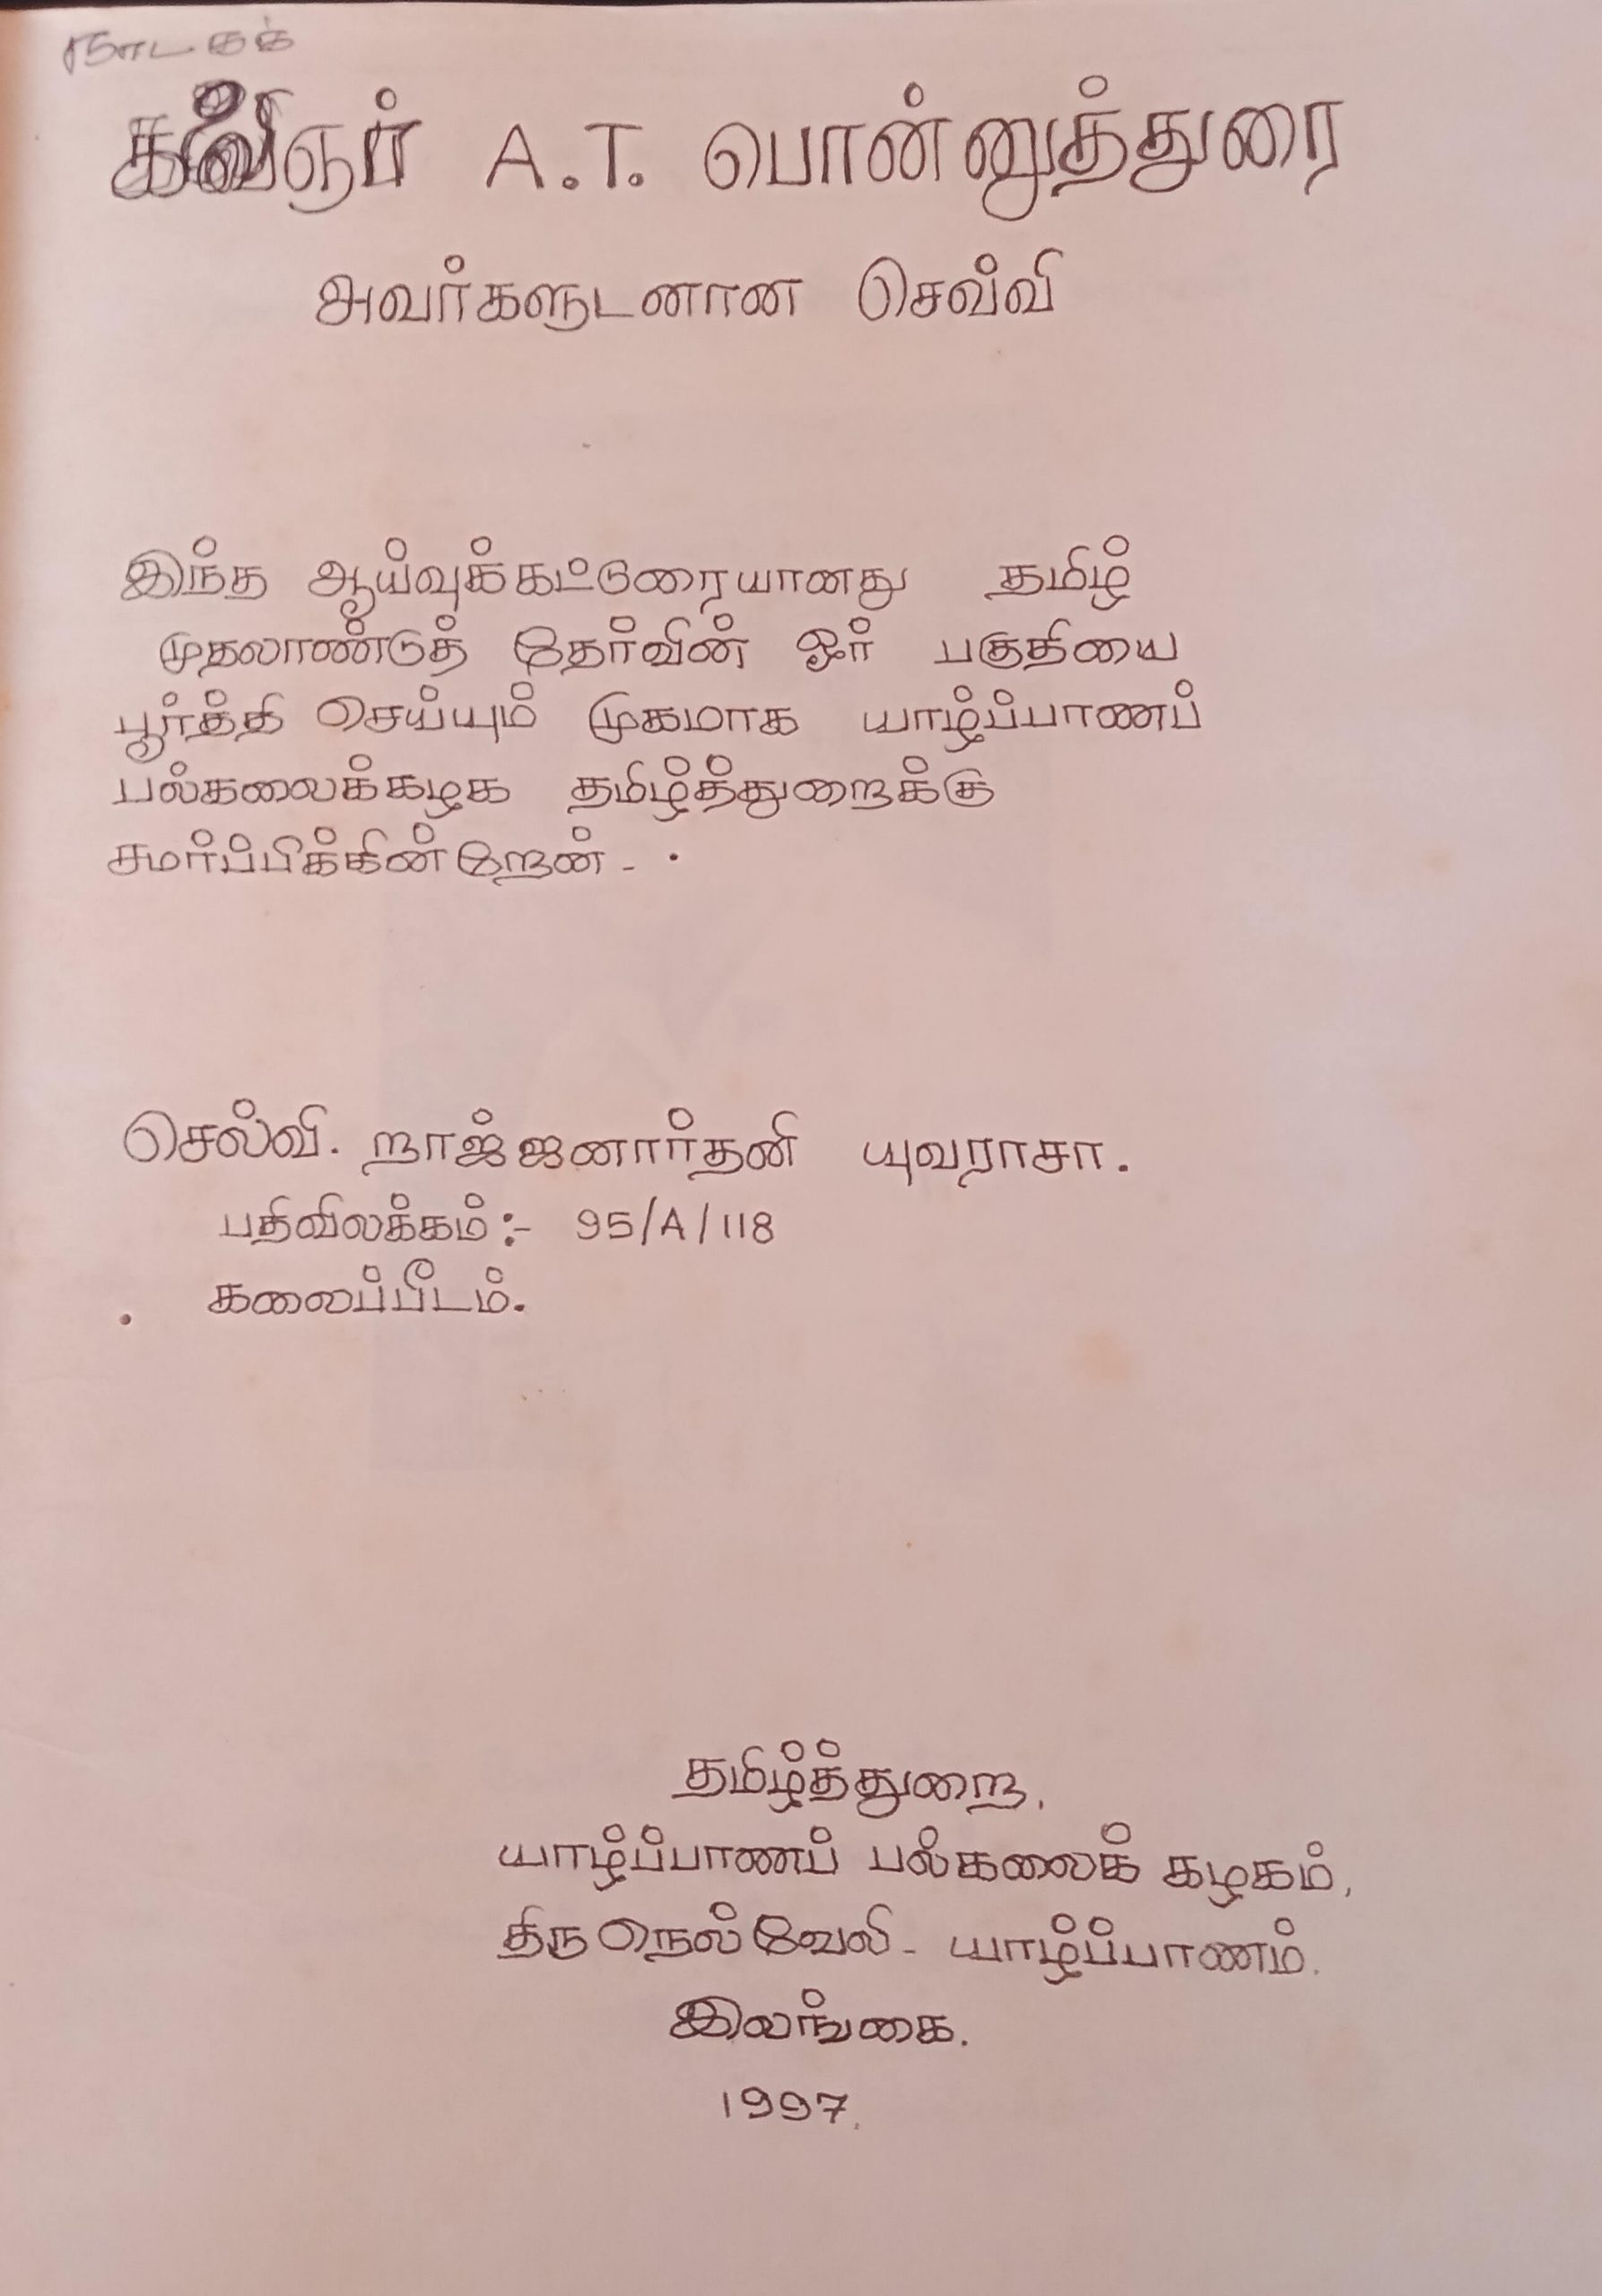 நாடகக்
கவிஞர் A.T. பொன்னுத்துரை
அவர்களுடனான செவ்வி
இந்த ஆய்வுக்கட்டுரையானது தமிழ்
முதலாண்டுத் தேர்வின் ஓர் பகுதியை
பூர்த்தி செய்யும் முகமாக யாழ்ப்பாணப்
பல்கலைக்கழக தமிழ்த்துறைக்கு
சமர்ப்பிக்கின்றேன்-.
செல்வி. நாஜ்ஜனார்தனி யுவராசா.
பதிவிலக்கம் :- 95/A/118
கலைப்பீடம்.
தமிழ்த்துறை,
யாழ்ப்பாணப் பல்கலைக் கழகம்,
திருநெல்வேலி - யாழ்ப்பாணம்.
இலங்கை.
1997.